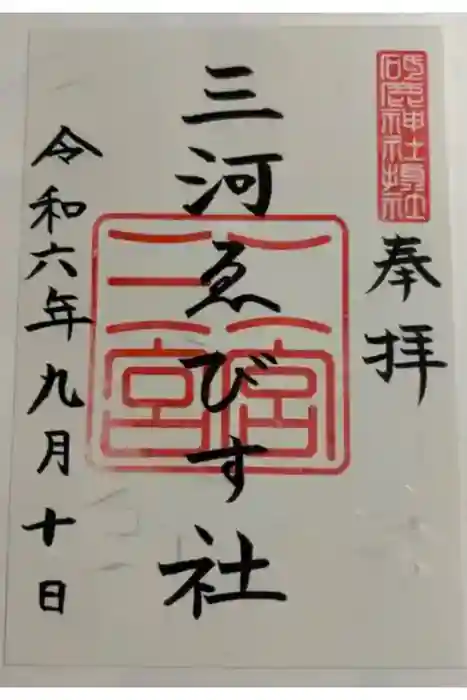 砥鹿神社摂社
奉拝
三河ゑびす社
二宮
三宮
令和六年九月十日